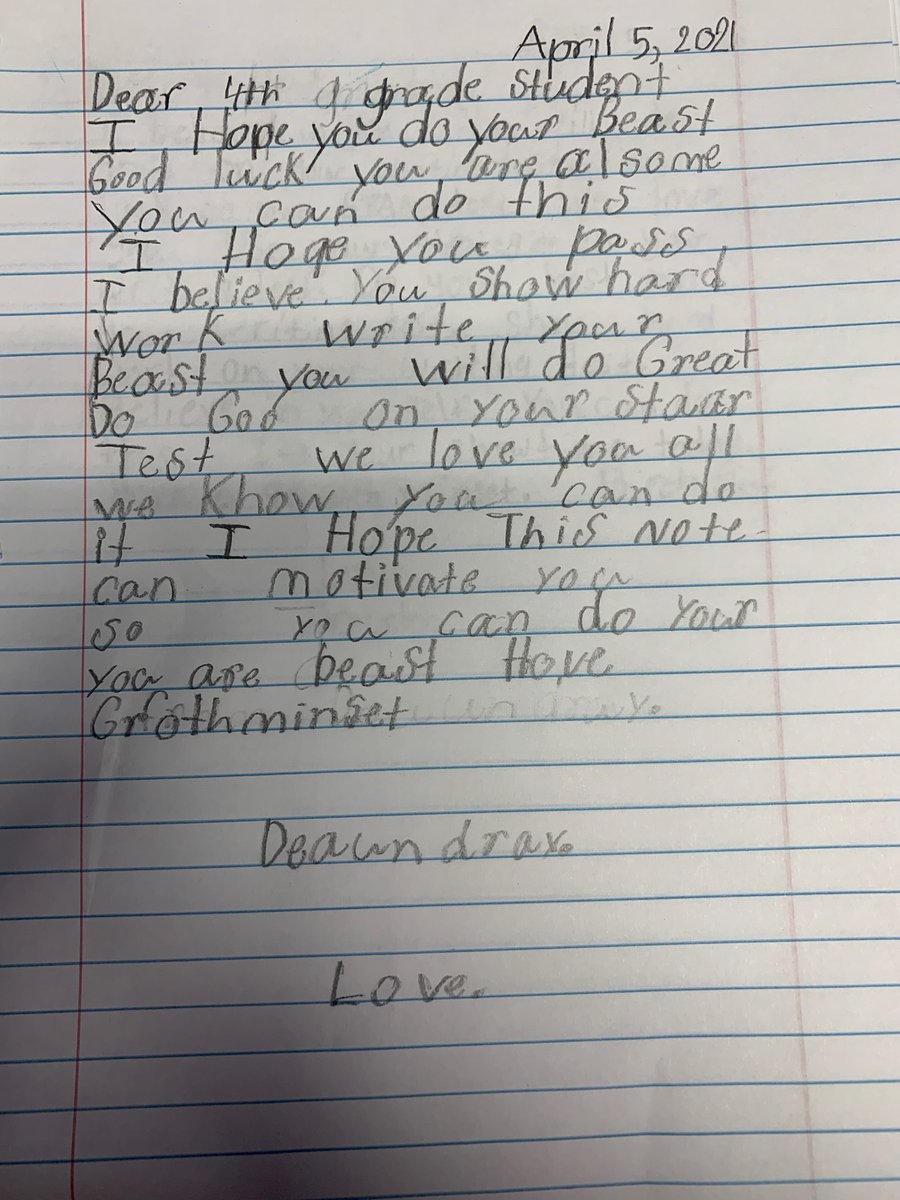 April 5, 2021
Dear 4th g grade student
I Hope you do your Beast
Good luck you are alsome
you can do this
I Hope you pass
I believe. You show hard
work write your
Beast you will do Great
Do God on your staar
Test we love you all
we Khow you can do
it I Hope This Note
can motivate you
so you can do your
you are beast Have
Grothminset
Deaundrax.
Love.